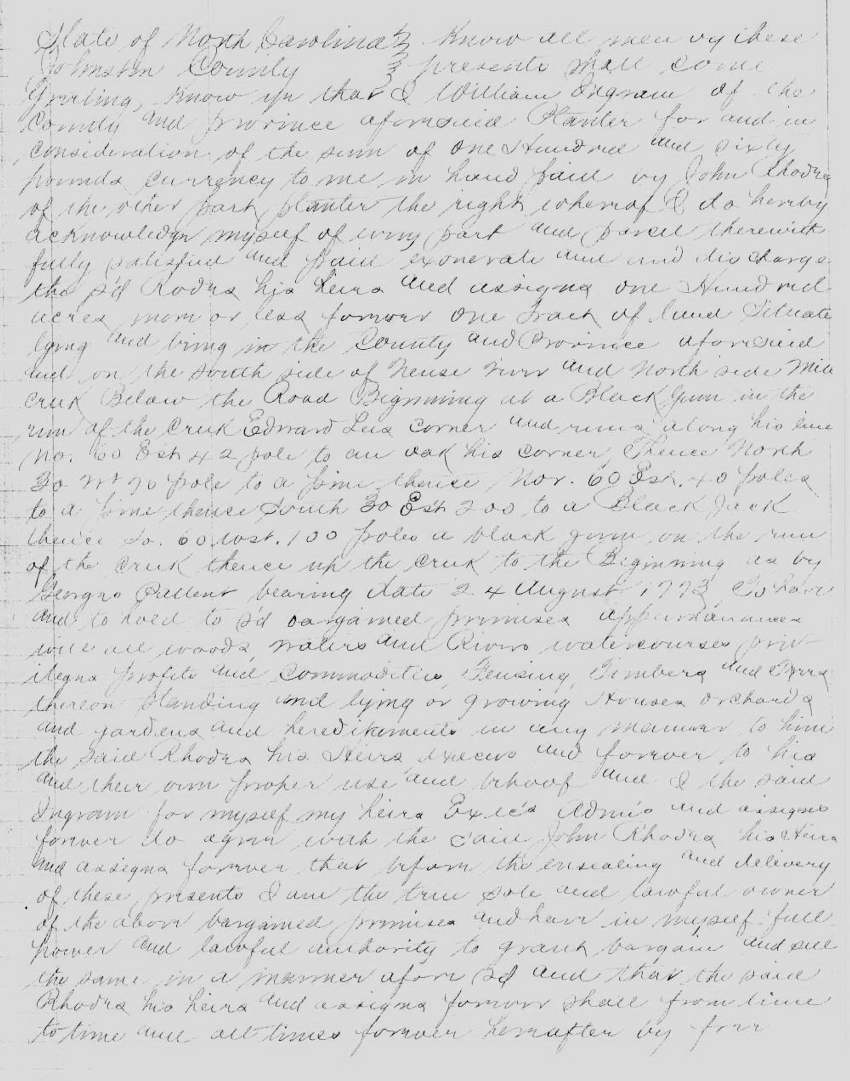 State of North Carolina } Know all men by these
Johnston County } presents shall come
Greeting, Know ye that I William Ingram of the
County and province aforesaid Planter for and in
consideration of the sum of one Hundred and sixty
pounds currency to me in hand paid by John Rhodes
of the other part planter the right whereof I do hereby
acknowledge myself of every part and parcel therewith
fully satisfied and paid exonerate and discharge
the s'd Rodes his heirs and assigns one Hundred
acres more or less forever one tract of land Situate
lying and being in the County and Province aforesaid
and on the South side of Neuse River and North side Mill
Creek Below the Road Beginning at a Black gum in the
run of the creek Edward Lees corner and runs along his line
No. 60 Est 42 pole to an oak his corner, Thence North
30 Wt 70 pole to a pine thence Nor. 60 Est. 40 poles
to a pine thence South 30 Est 200 to a Black Jack
thence So. 60 West. 100 poles a black gum on the run
of the creek thence up the creek to the Beginning as by
Georges Pattent bearing date 24 August 1773 To have
and to hold to s'd bargained premises appurtanances
with all woods, waters and Rivers watercourses priv
ileges profits and commodities, Fensing, Timbers and
thereon standing and lying or growing Houses orchards
and gardens and hereditements in any manner to him
the said Rhodes his Heirs and forever to his
and their own proper use and behoof and I the said
Ingram for myself my heirs Exte's Adm's and assigns
forever do agree with the said John Rhodes his Heirs
and assigns forever that before the ensealing and delivery
of these presents I am the true sole and lawful owner
of the above bargained premises and have in myself full
power and lawful authority to grant bargain and sell
the same in a manner afore s'd and that the said
Rhodes his heirs and assigns forever shall from time
to time and all times forever hereafter by forr